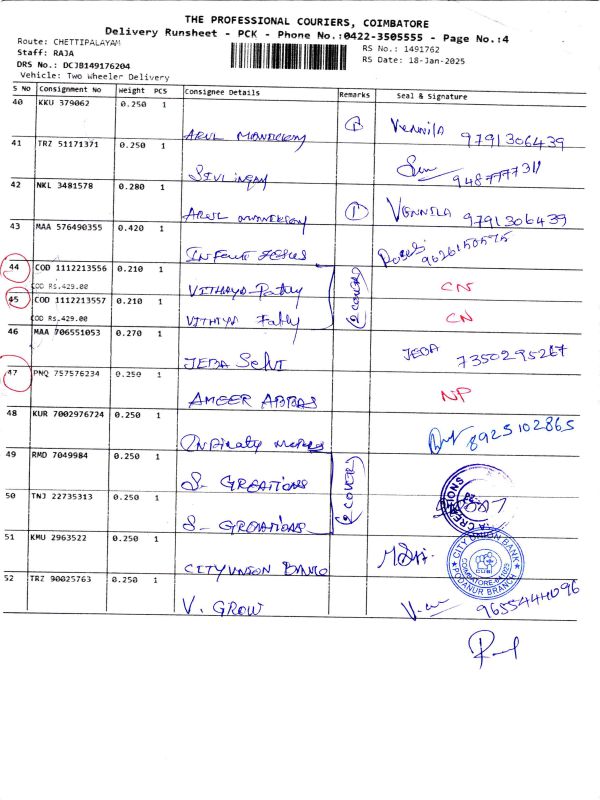 THE PROFESSIONAL COURIERS, COIMBATORE
Delivery Runsheet - PCK - Phone No.:0422-3505555 - Page No.:4
Route: CHETTIPALAYAM
Staff: RAJA
DRS No.: DCJB149176204
Vehicle: Two Wheeler Delivery
RS No.: 1491762
RS Date: 18-Jan-2025
S No Consignment No Weight PCS Consignee Details Remarks Seal & Signature
40 KKU 379062 0.250 1
Vennila 9791306439
41 TRZ 51171371 0.250 1
42 NKL 3481578 0.280 1
VENNILA 9791306439
43 MAA 576490355 0.420 1
INFANT JESUS 9626150575
44 COD 1112213556 0.210 1
COD Rs.429.00
CN
45 COD 1112213557 0.210 1
COD Rs.429.00
CN
(2 COVER)
46 MAA 706551053 0.270 1
JEBA Selvi JEBA 7350295267
47 PNQ 757576234 0.250 1
AMEER ABBAS NP
48 KUR 7002976724 0.250 1
8925102865
49 RMD 7049984 0.250 1
S- GREATIONS
50 TNJ 22735313 0.250 1
S- GREATIONS
(2 COVER)
51 KMU 2963522 0.250 1
CITYUNION BANK
CITY UNION BANK
COIMBATORE-641023
PODANUR BRANCH
52 TRZ 90025763 0.250 1
V. GROW 9655444096